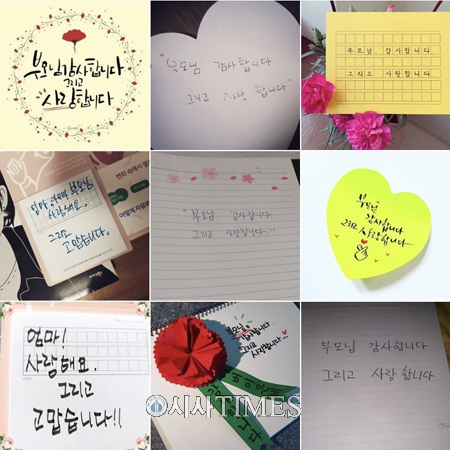 부모님 감사합니다
그리고
사랑합니다
"부모님 감사합니다
그리고 사랑 합니다"
부모님 감사합니다
그리고 사랑합니다
부모님
사랑해요.
그리고
고맙습니다.
"부모님 감사합니다.
그리고 사랑합니다."
부모님
감사합니다
그리고 사랑합니다~
엄마!
사랑해요.
그리고
고맙습니다!!
부모님
감사합니다
그리고
사랑합니다...
시사TIMES
부모님 감사합니다
그리고 사랑합니다.